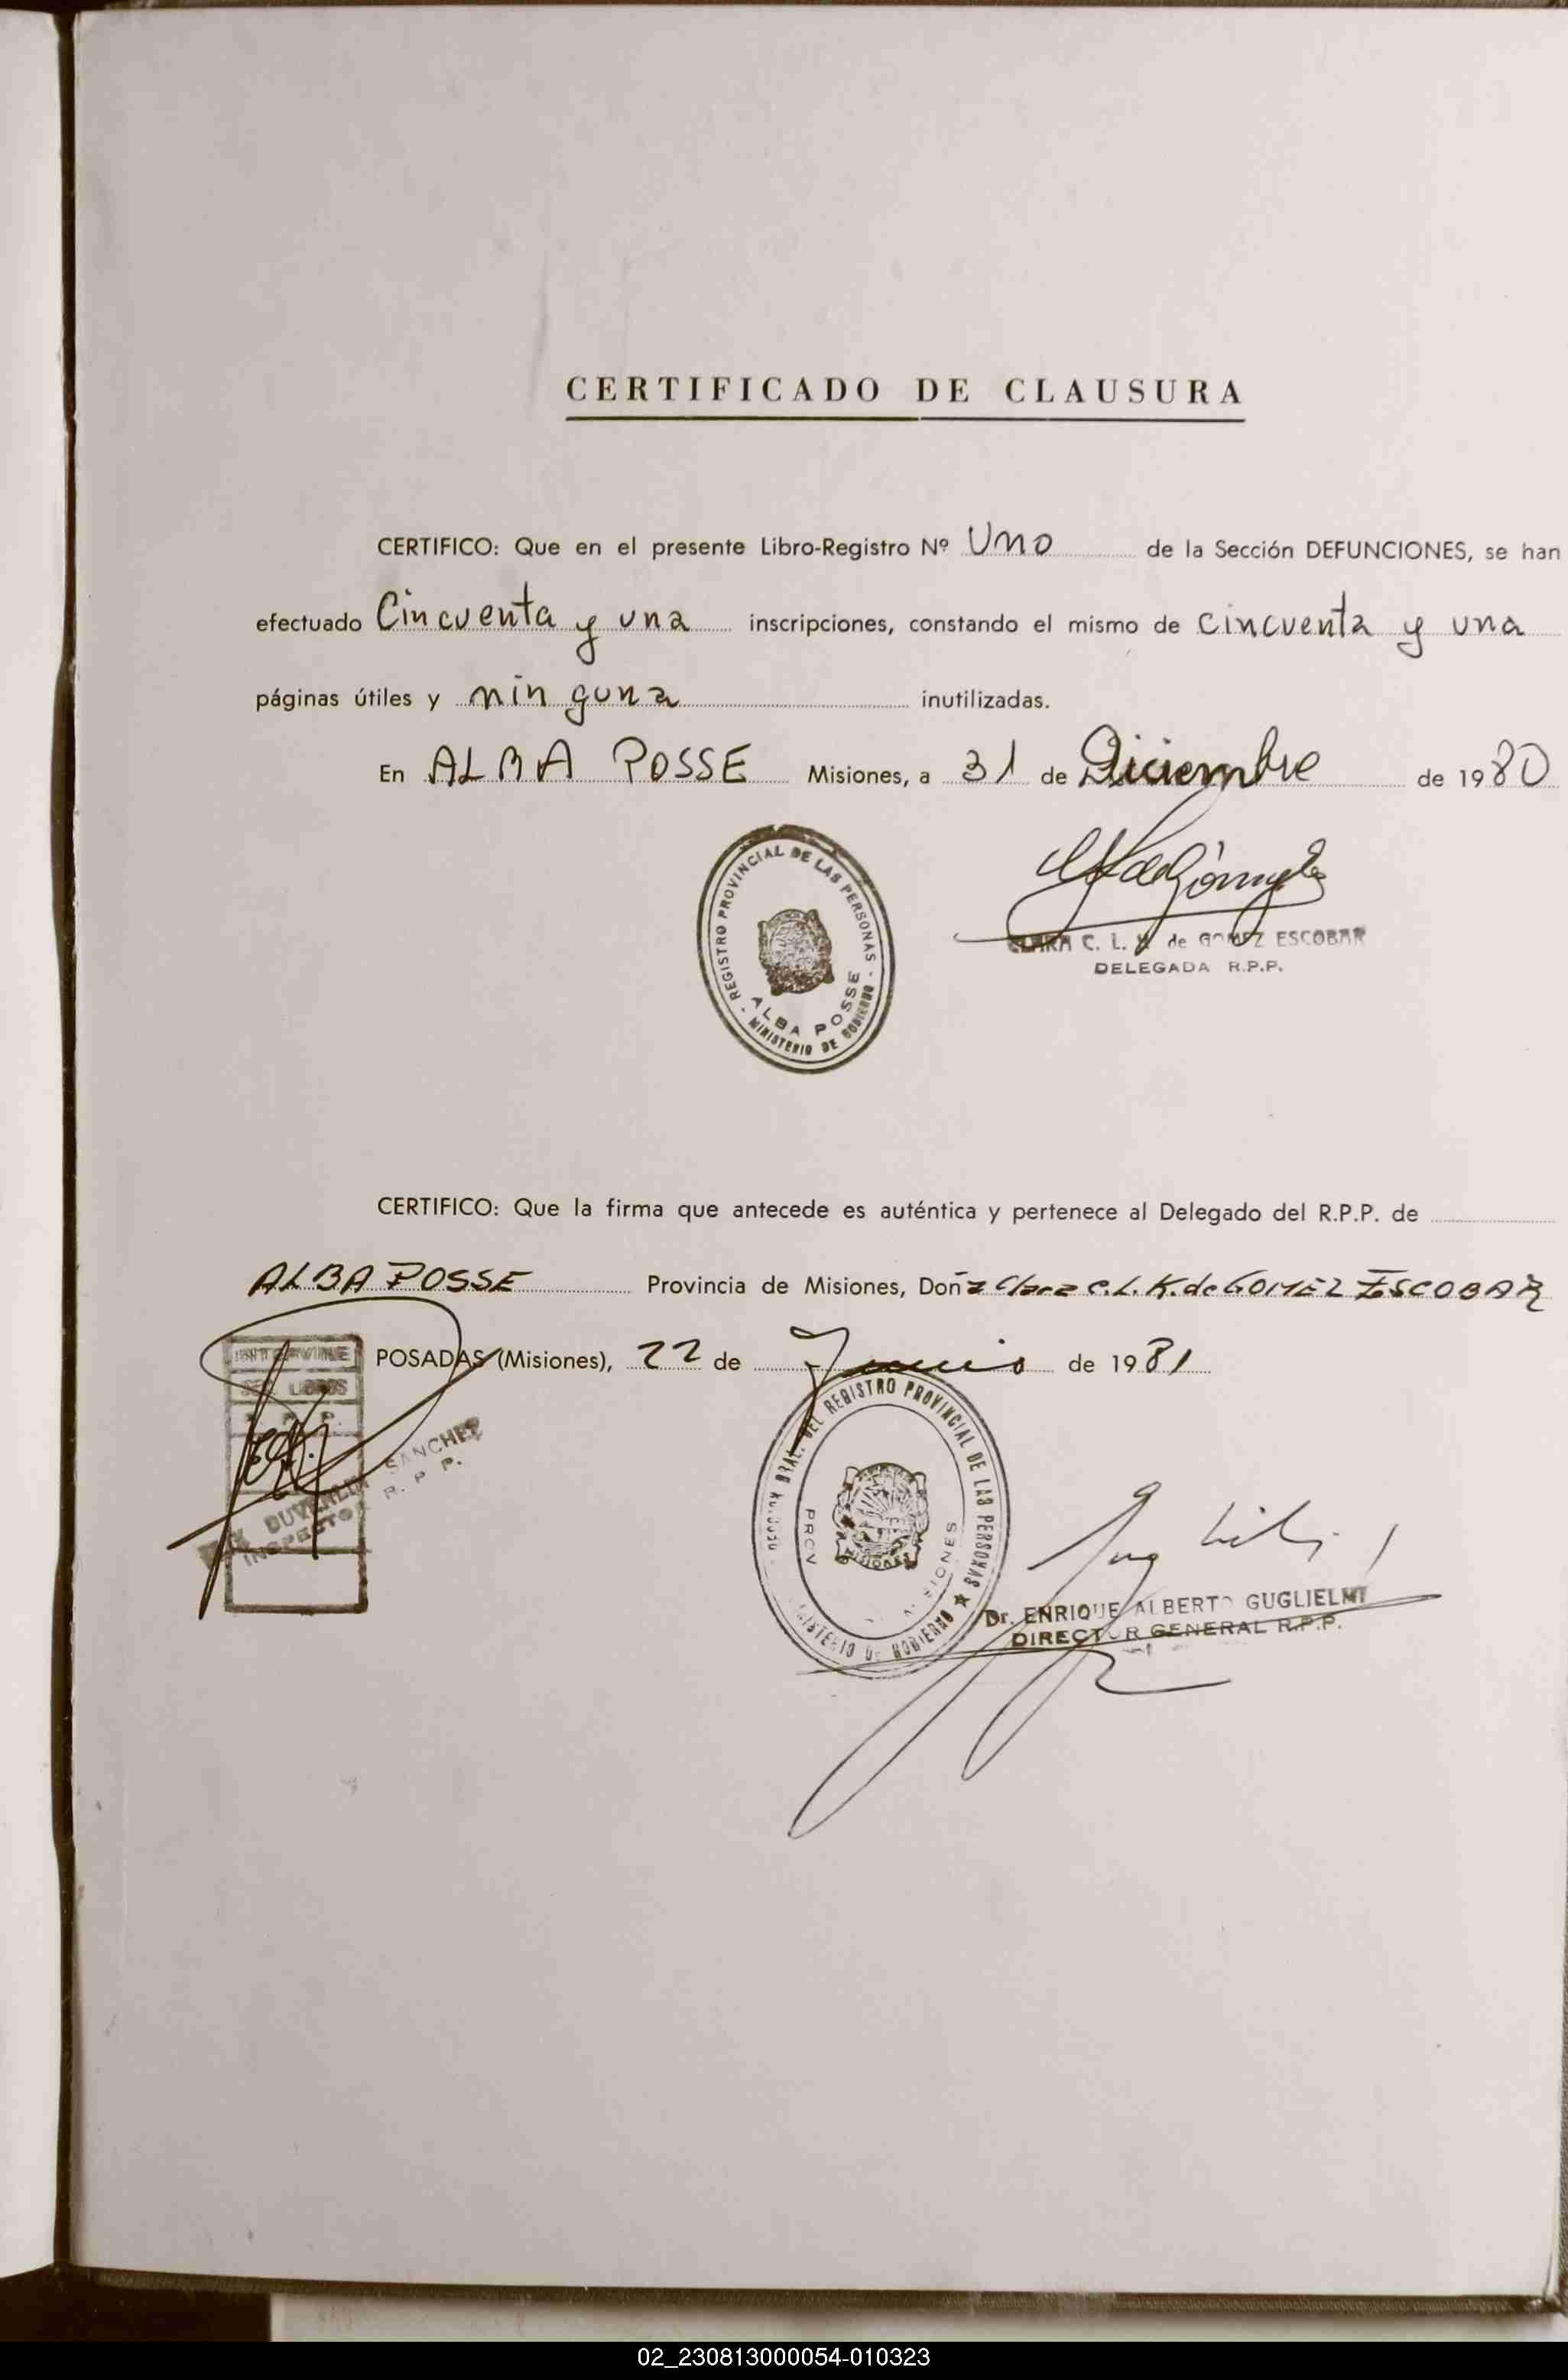 CERTIFICADO DE CLAUSURA
CERTIFICO: Que en el presente Libro-Registro Nº Uno de la Sección DEFUNCIONES, se han
efectuado Cincuenta y una inscripciones, constando el mismo de cincuenta y una
páginas útiles y ninguna inutilizadas.
En ALBA POSSE Misiones, a 31 de Diciembre de 1980
REGISTRO PROVINCIAL DE LAS PERSONAS
ALBA POSSE
MINISTERIO DE GOBIERNO
CLARA C. L. K de GOMEZ ESCOBAR
DELEGADA R.P.P.
CERTIFICO: Que la firma que antecede es auténtica y pertenece al Delegado del R.P.P. de
ALBA POSSE Provincia de Misiones, Doña Clara C.L.K. de GOMEZ ESCOBAR
POSADAS (Misiones), 22 de Junio de 1981
INTERVINE
SEC. LIBROS
R. P. P.
DUVERLIN SANCHEZ
INSPECTOR R. P. P.
DIRECCION GRAL. DEL REGISTRO PROVINCIAL DE LAS PERSONAS
PROV MISIONES
MISIONES
MINISTERIO DE GOBIERNO
Dr. ENRIQUE ALBERTO GUGLIELMI
DIRECTOR GENERAL R.P.P.
02_230813000054-010323